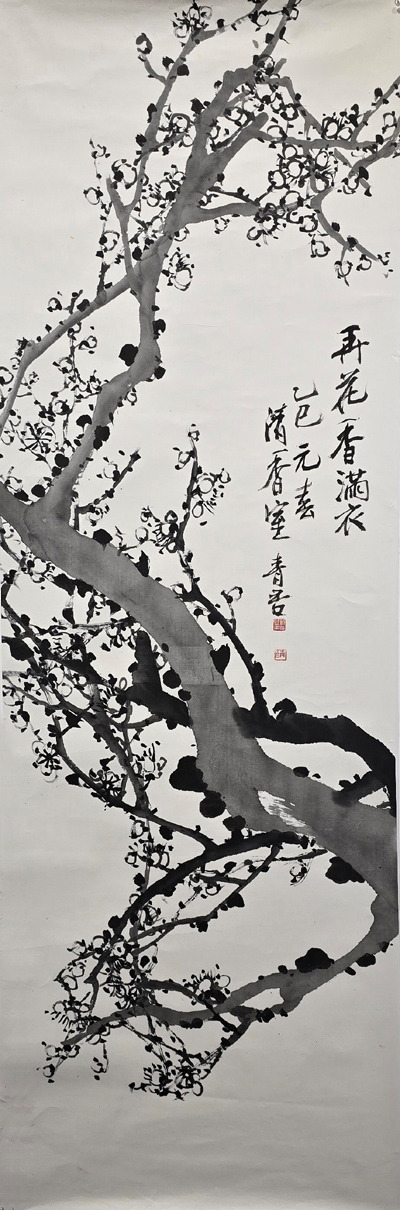 弄花香滿衣
乙巳元春
清香室 青吾